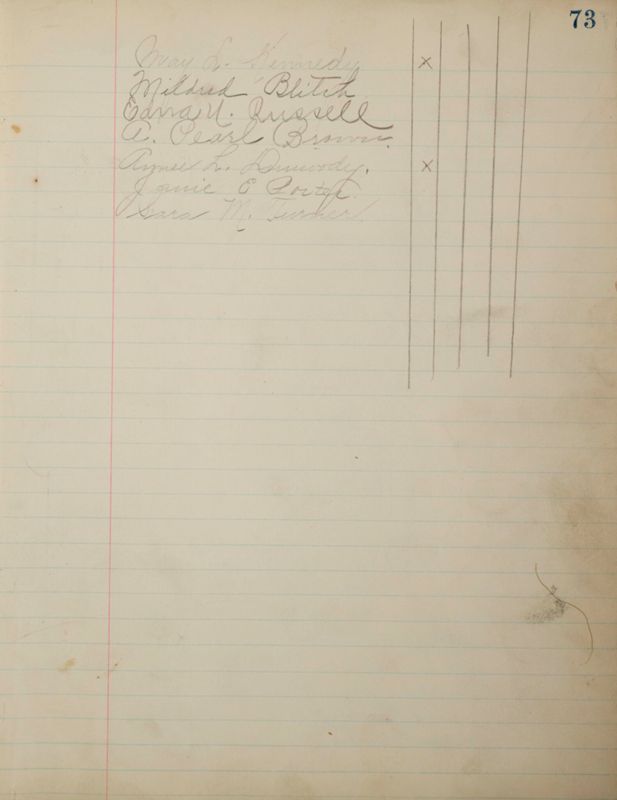 73
May L. Kennedy ×
Mildred Blitch
Edna U. Russell
A. Pearl Brown.
Aymee L. Dunwody. ×
Janie E Porter.
Sara M. Turner